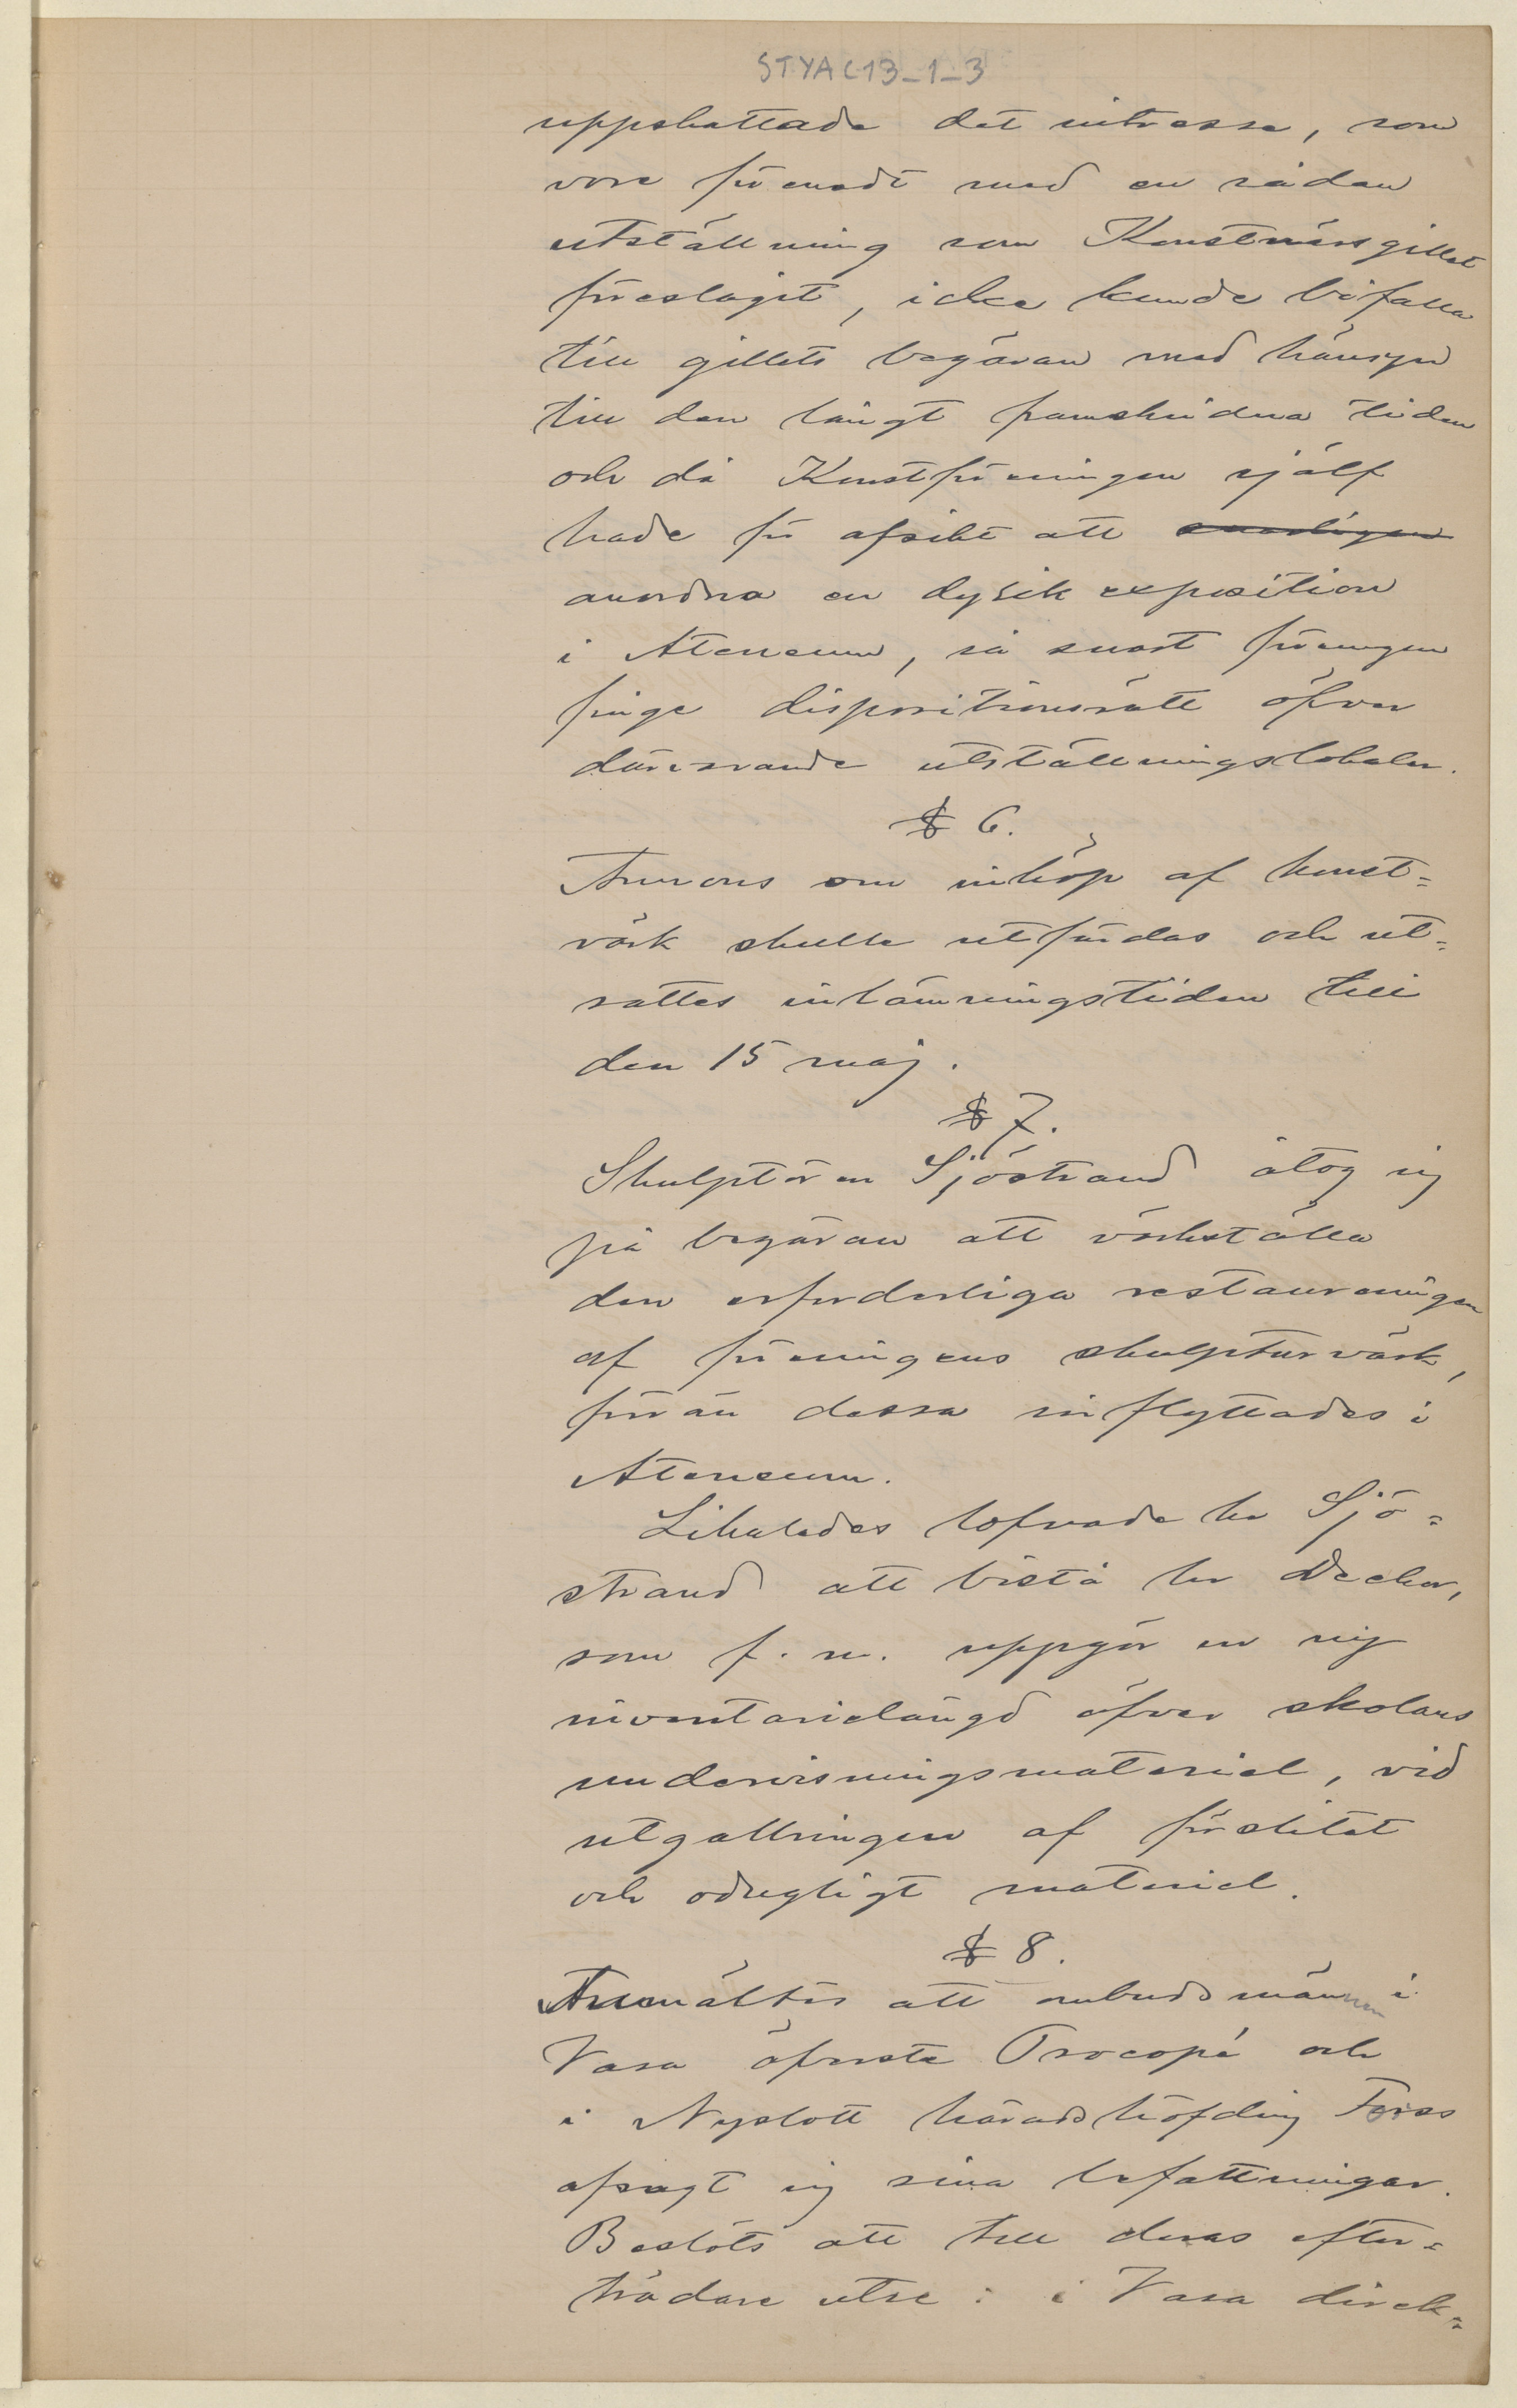 STYA C13_1_3
uppskattade det intresse, som
vore förenadt med en sådan
utställning som Konstnärsgillet
föreslagit, icke kunde bifalla
till gillets begäran med hänsyn
till den långt framskridna tiden
och då Konstföreningen själf
hade för afsikt att
anordna en dylik exposition
i Ateneum, så snart föreningen
finge dispositionsrätt öfver
därvarande utställningslokaler.
§ 6.
Annons om inköp af konst=
värk skulle utfärdas och ut=
sattes inlämningstiden till
den 15 maj.
§ 7.
Skulptören Sjöstrand åtog sig
på begäran att värkställa
den erforderliga restaureringen
af föreningens skulpturvärk,
förrän dessa inflyttades i
Ateneum.
Likaledes lofvade hr Sjö=
strand att bistå hr Becker,
som f. n. uppgör en ny
inventarielängd öfver skolans
undervisningsmateriel, vid
utgallringen af förslitet
och odugligt materiel.
§ 8.
Anmältes att ombudsmännen i
Vasa öfverste Procopé och
i Nyslott häradshöfding Forss
afsagt sig sina befattningar.
Beslöts att till deras efter=
trädare utse: i Vasa direk=